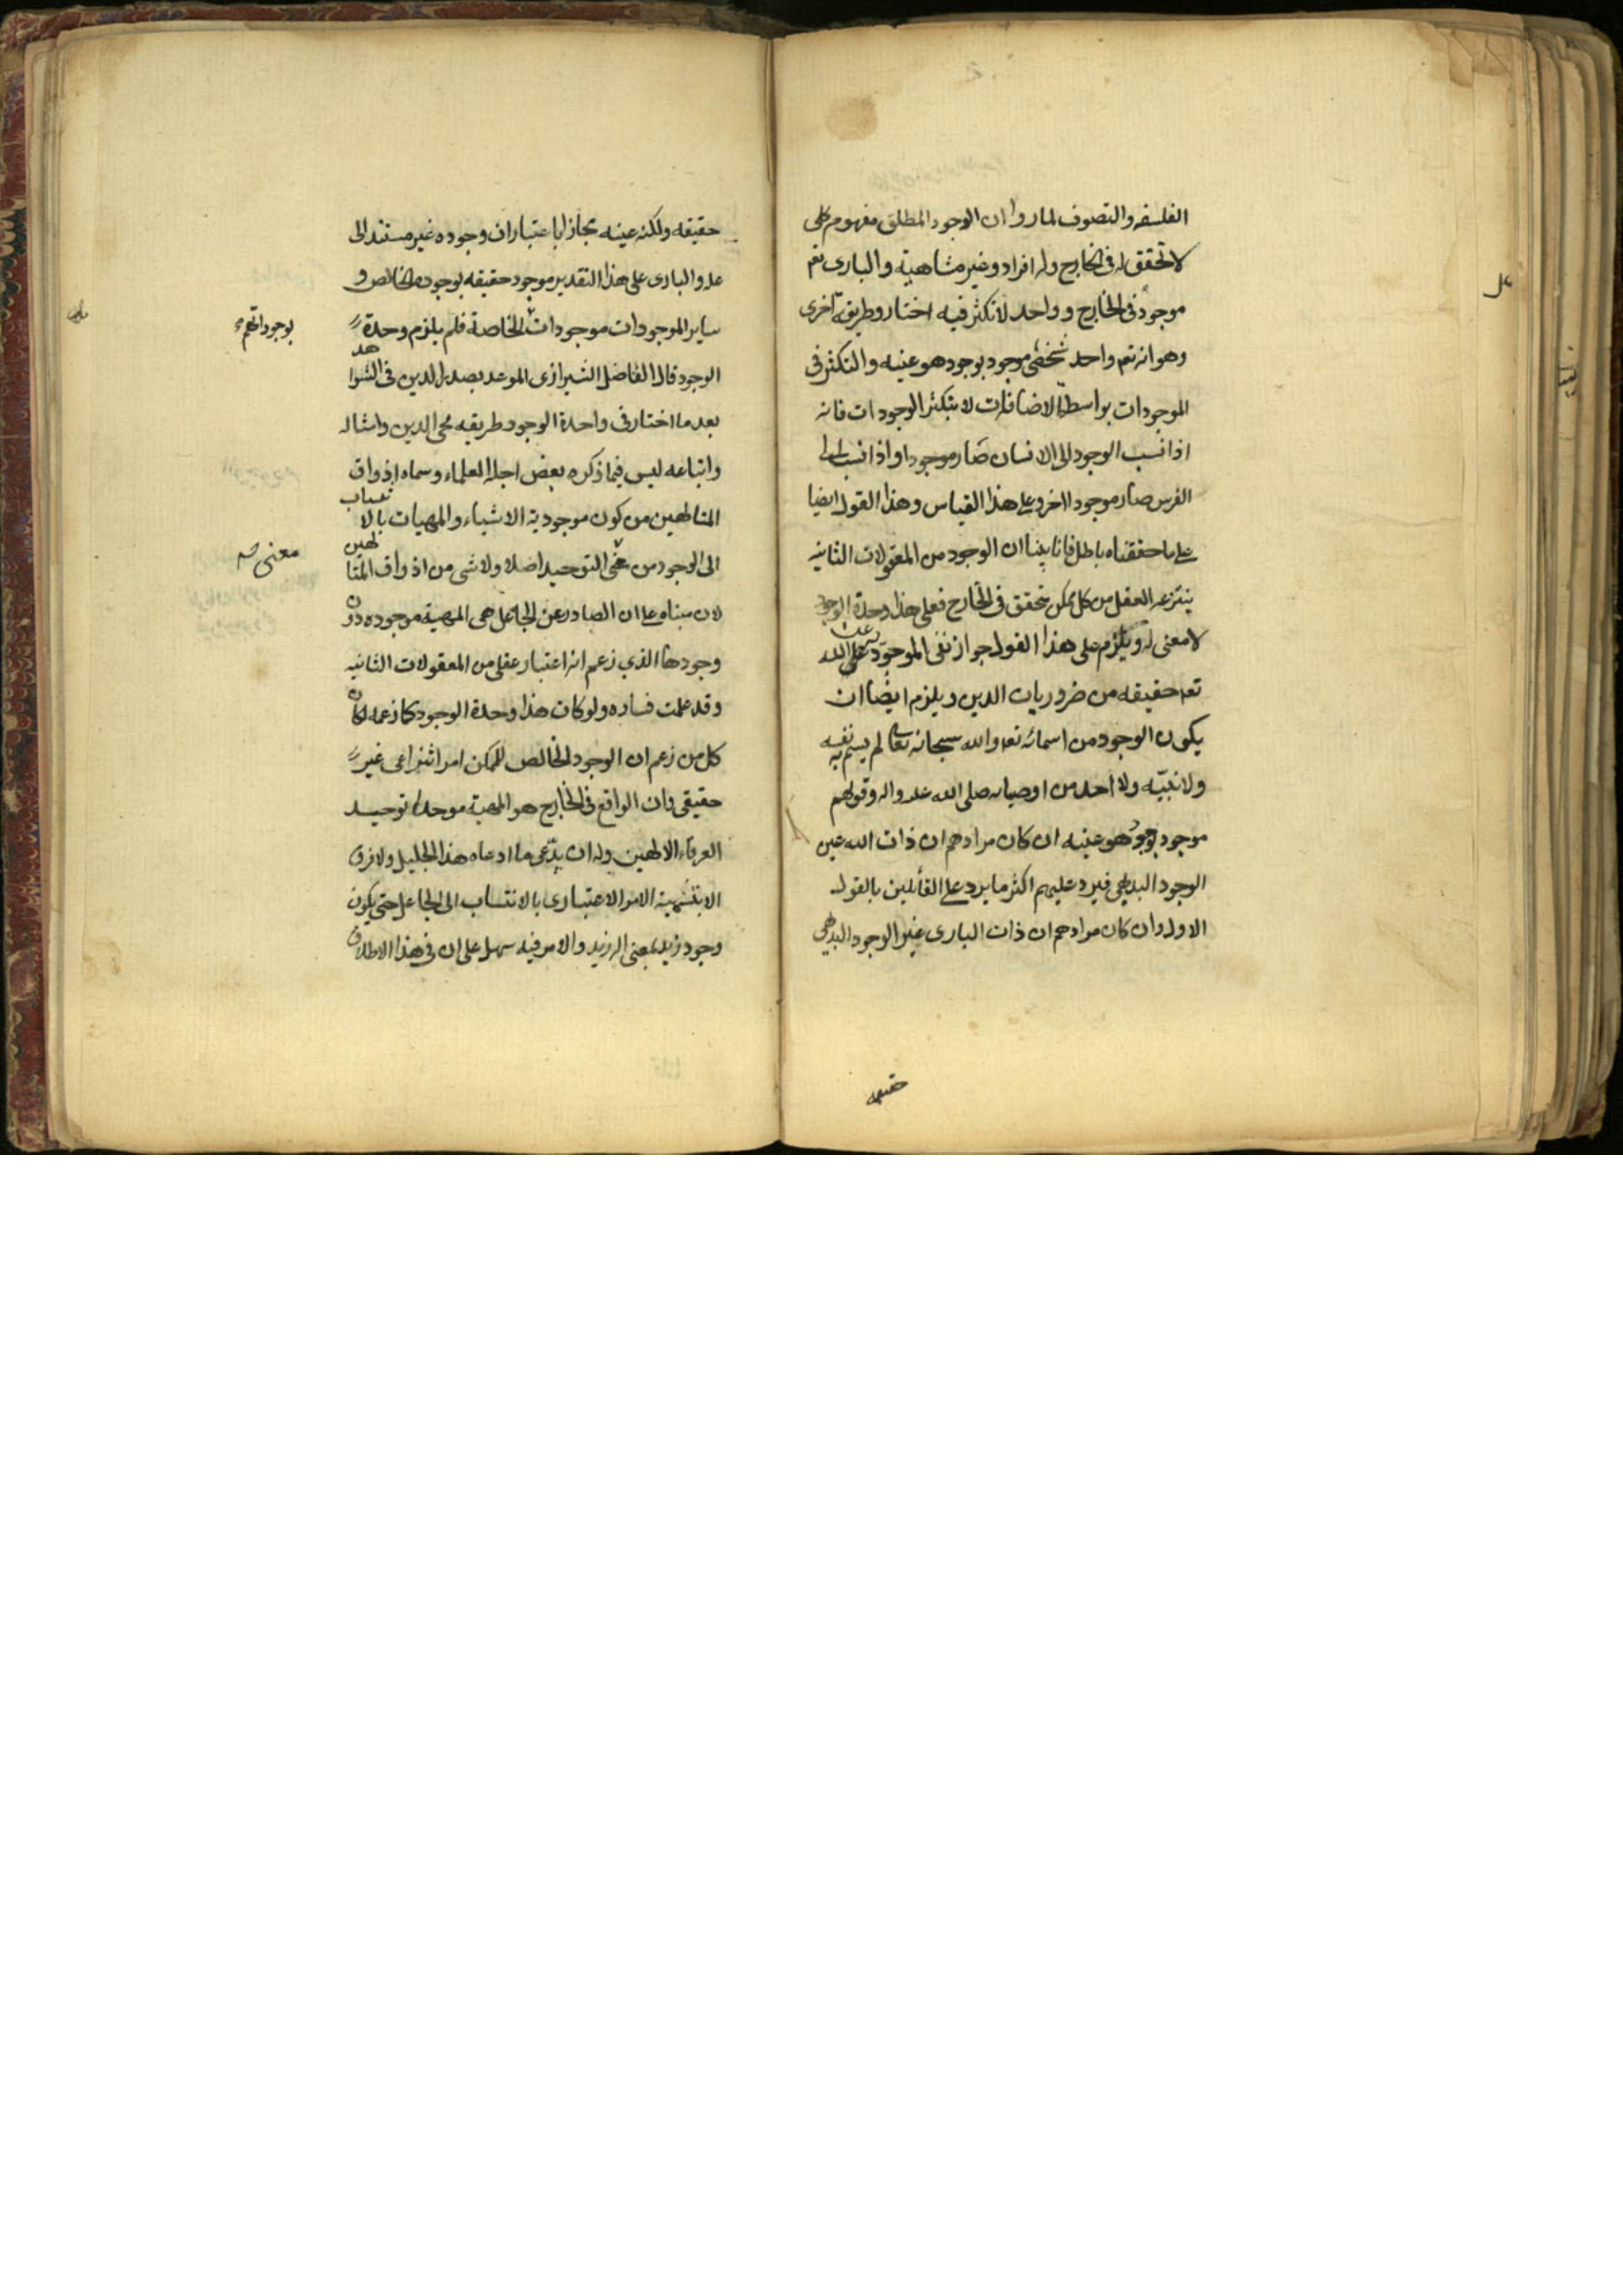 الفلسفه والتصوف لما راوا ان الوجود المطلق مفهوم كلي
لا تحقق له في الخارج وله افراد وغير متناهية والباري تعم
موجود في الخارج و واحد لا تكثر فيه اختار وطريقة اخرى
وهو انه تعم واحد شخصي موجود بوجود هو عينه والتكثر في
الموجودات بواسطة الاضافات لا بتكثر الوجودات فانه
اذا نسب الوجود الى الانسان صار موجودا واذا نسب الى
الفرس صار موجودا اخر وعلى هذا القياس وهذا القول ايضا
على ما حققناه باطل فانا بينا ان الوجود من المعقولات الثانيه
ينتزعه العقل من كل ممكن تحقق في الخارج فعلى هذا وحدة الوجود
لا معنى له ويلزم على هذا القول جواز نفى الموجودية عن الله
تعم حقيقه من ضروريات الدين ويلزم ايضا ان
يكون الوجود من اسمائه تعم والله سبحانه تعالى لم يسم به نفسه
ولا نبيّه ولا احد من اوصيائه صلى الله عليه واله وقولهم
موجود بوجود هو عينه ان كان مرادهم ان ذات الله عين
الوجود البديهي فيرد عليهم اكثر ما يرد على القائلين بالقول
الاول وان كان مرادهم ان ذات الباري غير الوجود البديهي
حقيقه
حقيقه ولكنه عينه مجازا باعتبار ان وجوده غير مستند الى
علة والباري على هذا التقدير موجود حقيقه بوجوده الخالص و
ساير الموجودات موجودات الخاصة فلم يلزم وحدة
بوجوداتهم
الوجود قال الفاضل الشيرازي الموعد بصدر الدين في الشواهد
بعد ما اختار في واحدة الوجود طريقيه محي الدين وامثاله
واتباعه ليس فيما ذكره بعض اجلة العلماء وسماه اذواق
المتالهين من كون موجودية الاشياء والمهيات بالانتساب
الى الوجود من معنى التوحيد اصلا ولا شي من اذواق المتالهين
معنى صه
لان مبناه على ان الصادر عن الجاعل هي المهية موجوده دون
وجودها الذي زعم انه اعتبار عقلي من المعقولات الثانيه
وقد علمت فساده ولو كان هذا وحدة الوجود كما زعمه لكان
كل من زعم ان الوجود الخالص للممكن امر انتزاعي غير
حقيقي وان الواقع في الخارج هو المهية موحدا توحيد
العرفاء الالهين وله ان يدّعى ما ادعاه هذا الجليل ولا فرق
الا بتسمية الامر الاعتباري بالانتساب الى الجاعل حتى يكون
وجود زيد بمعنى اله زيد والامر فيه سهل على ان في هذا الاطلاق